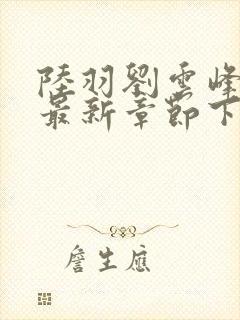 陸羽劉雲峰
最新章節下
詹生應